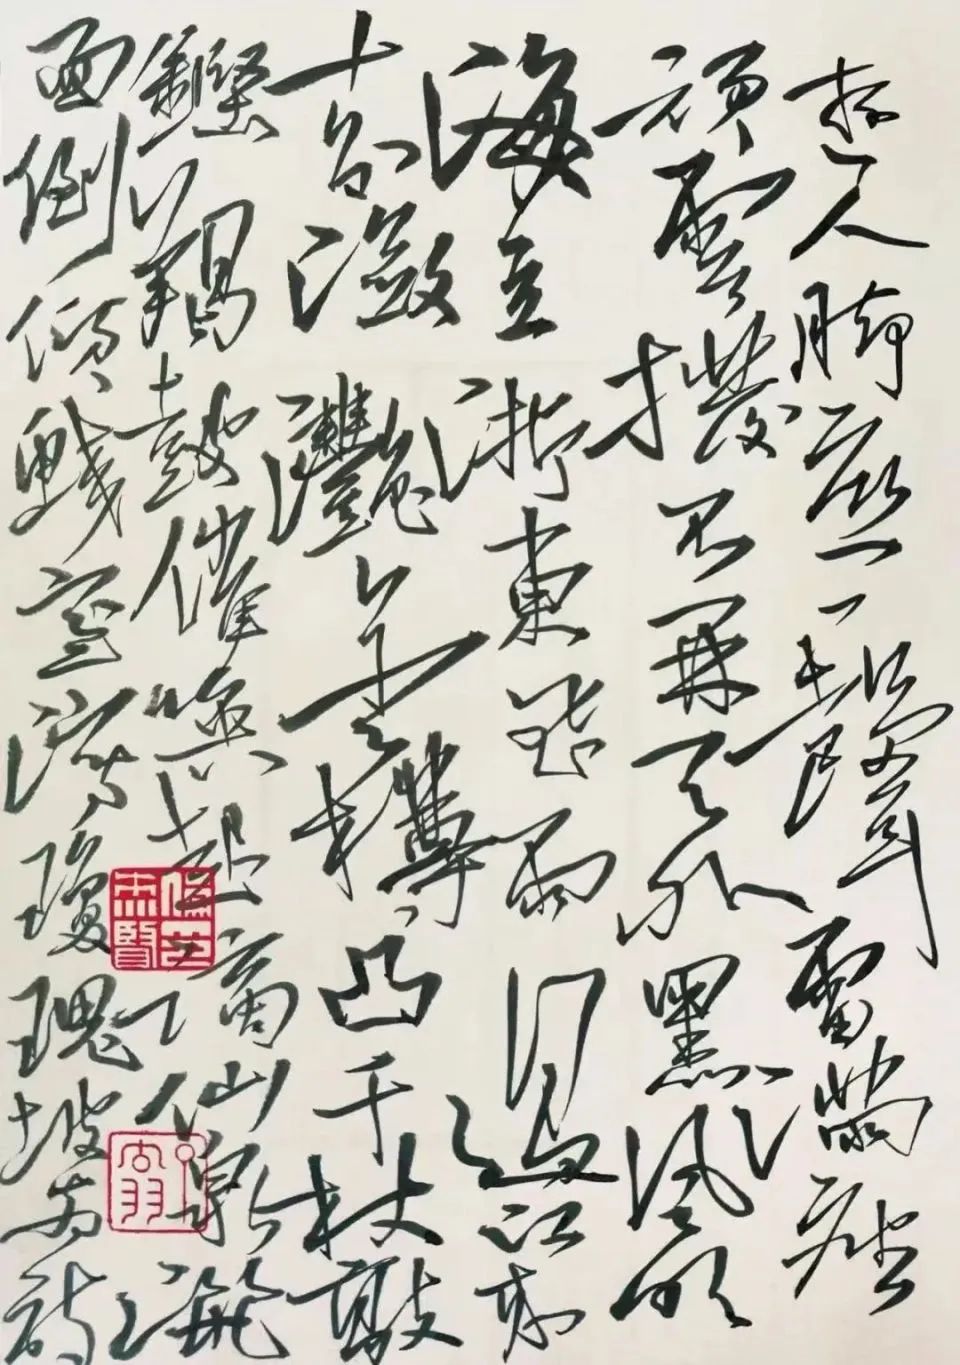 遊人脚底一聲雷滿座
頑雲撥不開天外黑風吹
海立浙東飛雨過江來
十分瀲灩金樽凸千杖敲
鏗羯鼓催喚起謫仙泉灑
面倒傾鮫室瀉瓊瑰坡翁詩